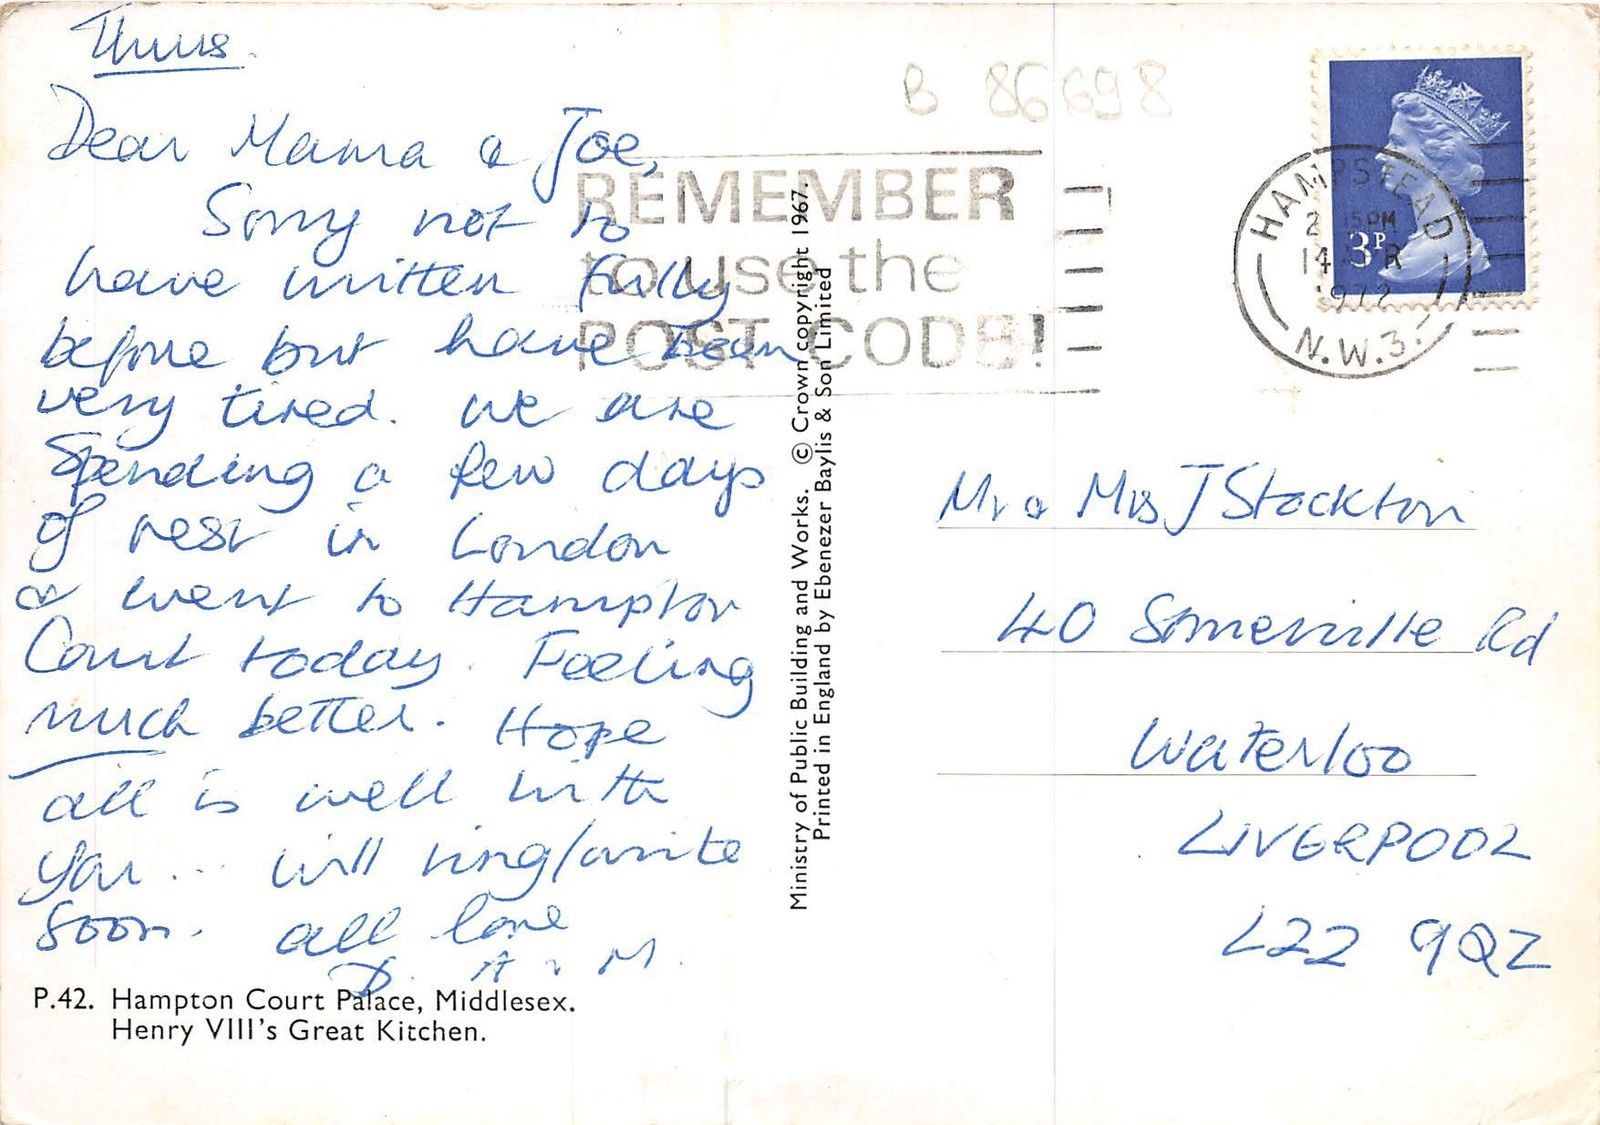 Thurs.
Dear Mama & Joe,
Sorry not to
have written fully
before but have been
very tired. We are
Spending a few days
of rest in London
& went to Hampton
Court today. Feeling
much better. Hope
all is well with
you... will ring/write
soon. all love
D. A & M.
P.42. Hampton Court Palace, Middlesex.
Henry VIII's Great Kitchen.
Ministry of Public Building and Works. © Crown copyright 1967.
Printed in England by Ebenezer Baylis & Son Limited
B 86698
REMEMBER
to use the
POST CODE!
HAMPSTEAD
PM
14
1972
N.W.3.
3P
Mr & Mrs J Stockton
40 Somerville Rd
Waterloo
LIVERPOOL
L22 9QZ